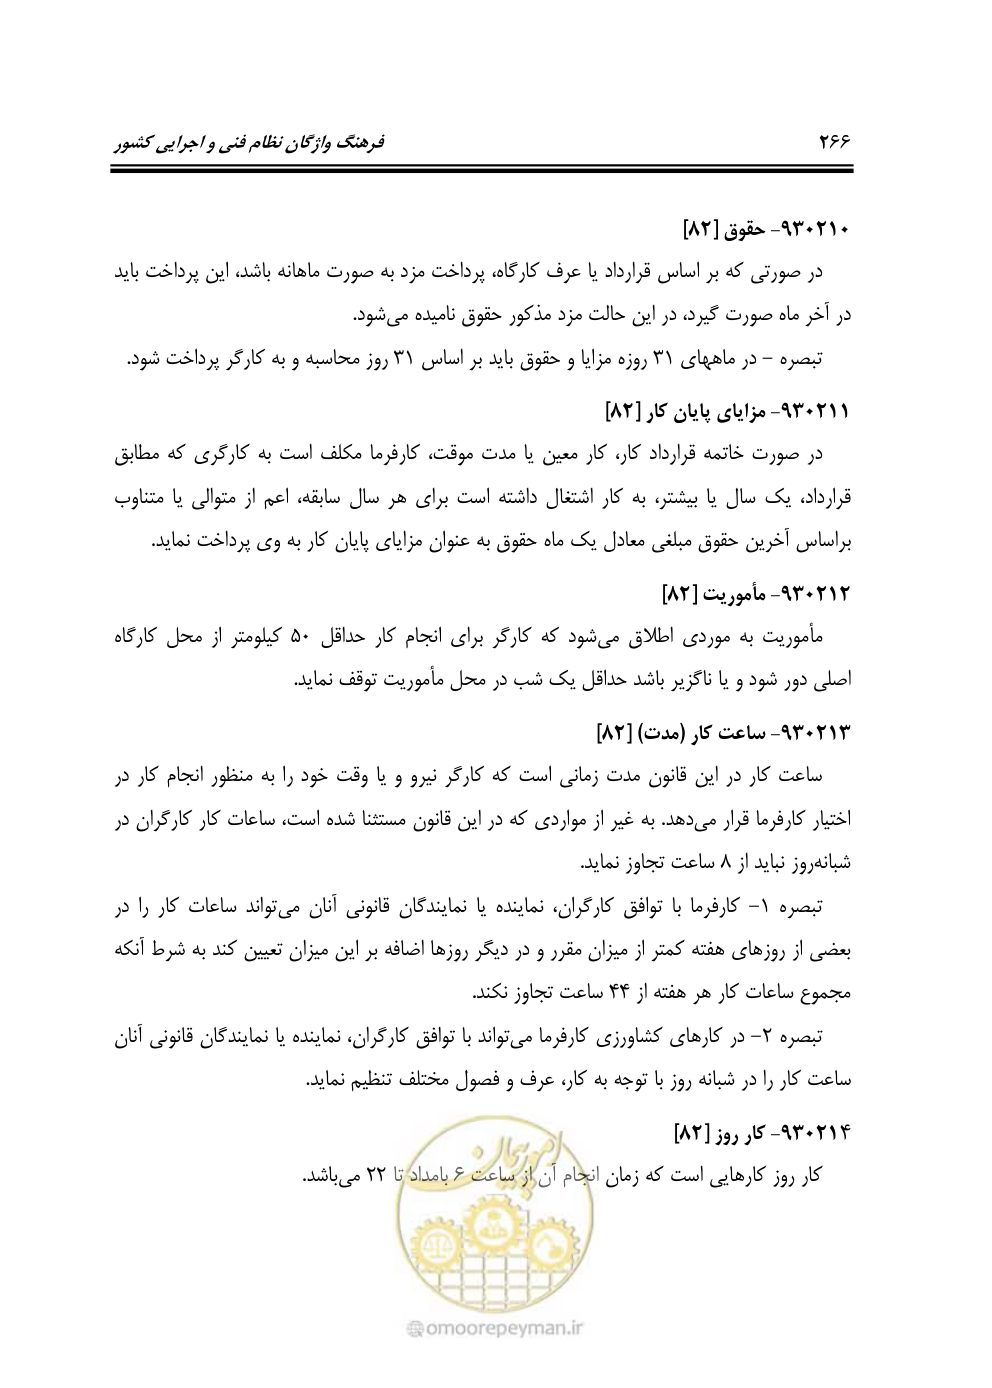 ۲۶۶
فرهنگ واژگان نظام فنی و اجرایی کشور
۹۳۰۲۱۰- حقوق [۸۲]
در صورتی که بر اساس قرارداد یا عرف کارگاه، پرداخت مزد به صورت ماهانه باشد، این پرداخت باید
در آخر ماه صورت گیرد، در این حالت مزد مذکور حقوق نامیده می‌شود.
تبصره – در ماههای ۳۱ روزه مزایا و حقوق باید بر اساس ۳۱ روز محاسبه و به کارگر پرداخت شود.
۹۳۰۲۱۱- مزایای پایان کار [۸۲]
در صورت خاتمه قرارداد کار، کار معین یا مدت موقت، کارفرما مکلف است به کارگری که مطابق
قرارداد، یک سال یا بیشتر، به کار اشتغال داشته است برای هر سال سابقه، اعم از متوالی یا متناوب
براساس آخرین حقوق مبلغی معادل یک ماه حقوق به عنوان مزایای پایان کار به وی پرداخت نماید.
۹۳۰۲۱۲- مأموریت [۸۲]
مأموریت به موردی اطلاق می‌شود که کارگر برای انجام کار حداقل ۵۰ کیلومتر از محل کارگاه
اصلی دور شود و یا ناگزیر باشد حداقل یک شب در محل مأموریت توقف نماید.
۹۳۰۲۱۳- ساعت کار (مدت) [۸۲]
ساعت کار در این قانون مدت زمانی است که کارگر نیرو و یا وقت خود را به منظور انجام کار در
اختیار کارفرما قرار می‌دهد. به غیر از مواردی که در این قانون مستثنا شده است، ساعات کار کارگران در
شبانه‌روز نباید از ۸ ساعت تجاوز نماید.
تبصره ۱- کارفرما با توافق کارگران، نماینده یا نمایندگان قانونی آنان می‌تواند ساعات کار را در
بعضی از روزهای هفته کمتر از میزان مقرر و در دیگر روزها اضافه بر این میزان تعیین کند به شرط آنکه
مجموع ساعات کار هر هفته از ۴۴ ساعت تجاوز نکند.
تبصره ۲- در کارهای کشاورزی کارفرما می‌تواند با توافق کارگران، نماینده یا نمایندگان قانونی آنان
ساعت کار را در شبانه روز با توجه به کار، عرف و فصول مختلف تنظیم نماید.
۹۳۰۲۱۴- کار روز [۸۲]
کار روز کارهایی است که زمان انجام آن از ساعت ۶ بامداد تا ۲۲ می‌باشد.
امور پیمان
@omoorepeyman.ir